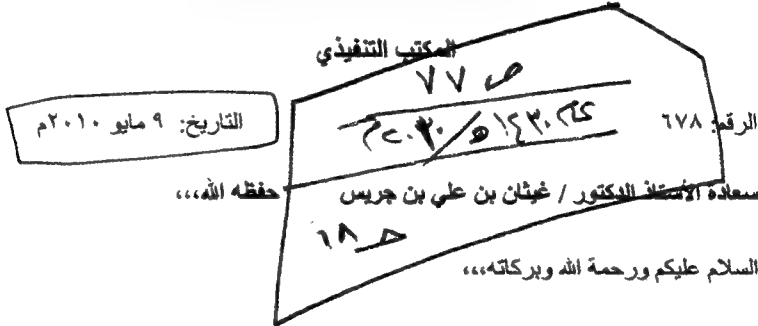 المكتب التنفيذي
ص ٧٧
الرقم: ٦٧٨
التاريخ: ٩ مايو ٢٠١٠م
سعادة الأستاذ الدكتور / غيثان بن علي بن جريس حفظه الله،،،
٦٨
السلام عليكم ورحمة الله وبركاته،،،